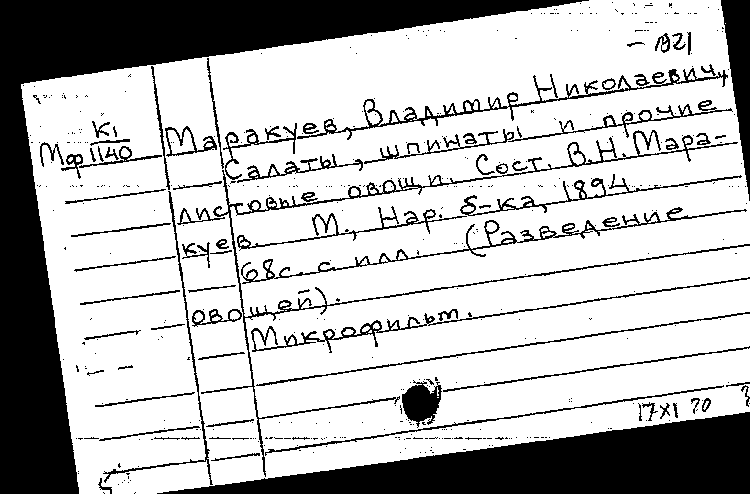 – 1921
К1
Мф 1140
Маракуев, Владимир Николаевич,
Салаты, шпинаты и прочие
листовые овощи. Сост. В.Н. Мара-
куев. М., Нар. б-ка, 1894.
68с. с илл. (Разведение
овощей).
Микрофильм.
17 XI 70